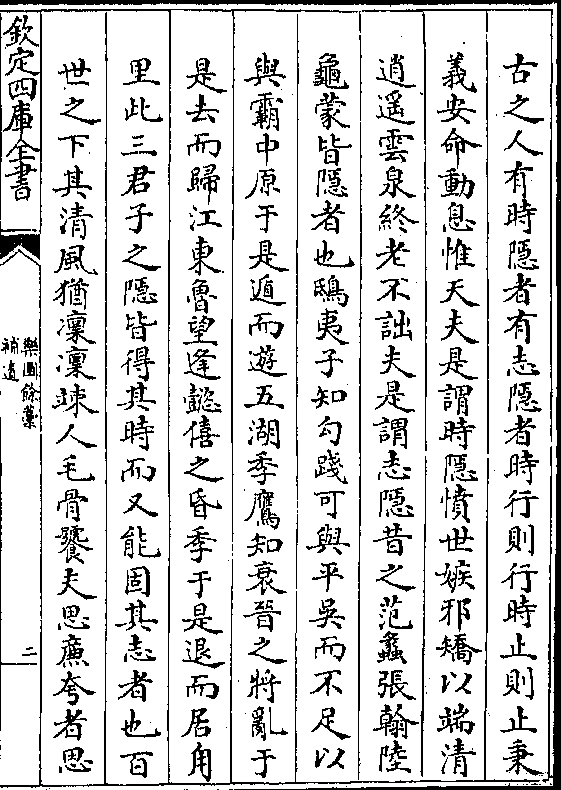 古之人有時隱者有志隱者時行則行時止則止秉
義安命動息惟天夫是謂時隱憤世嫉邪矯以端清
逍遥雲泉終老不詘夫是謂志隱昔之范蠡張翰陸
龜蒙皆隱者也鴟夷子知勾踐可與平吳而不足以
與霸中原于是遁而遊五湖季鷹知衰晉之將亂于
是去而歸江東魯望逢懿僖之昏季于是退而居角
里此三君子之隱皆得其時而又能固其志者也百
世之下其清風猶凜凜竦人毛骨饕夫思廉夸者思
欽定四庫全書
樂圃餘藁
補遺
二